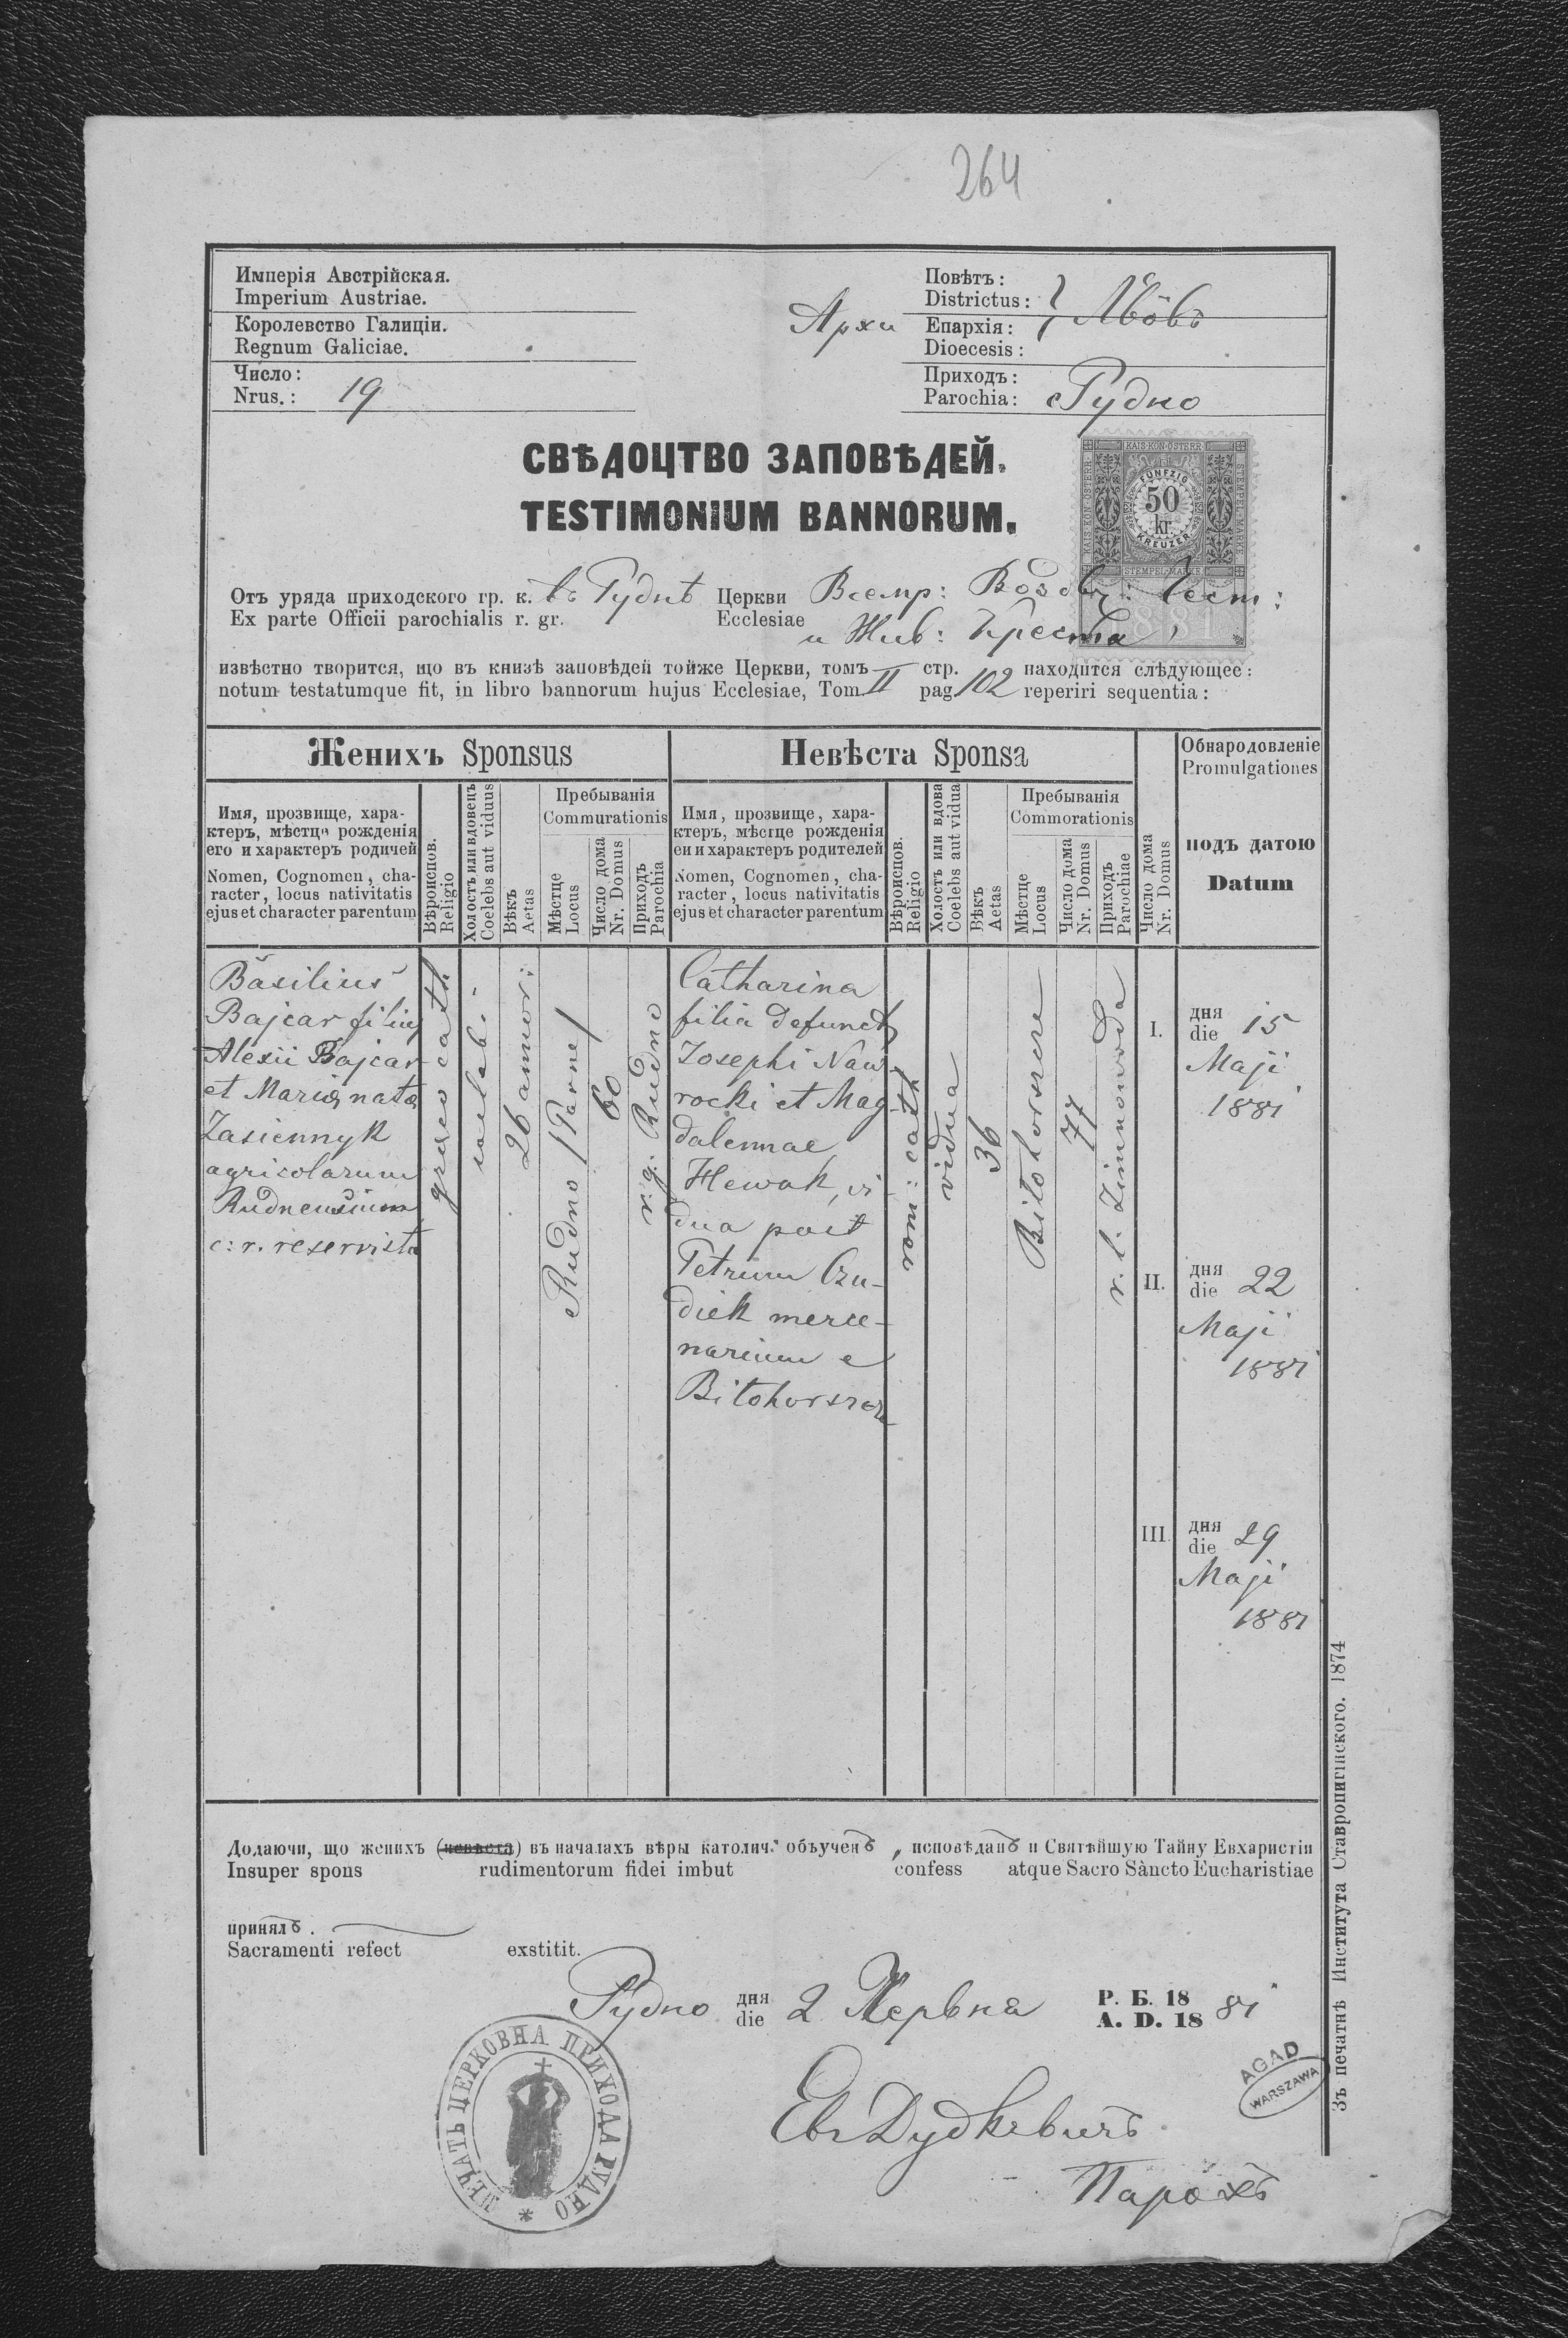 264
Имперія Австрійская.
Imperium Austriae.
Королевство Галиціи.
Regnum Galiciae.
Число:
Nrus.: 19
Повѣтъ:
Districtus: } Львôвъ
Архи Епархія:
Dioecesis:
Приходъ:
Parochia: Рудно
СВѢДОЦТВО ЗАПОВѢДЕЙ.
TESTIMONIUM BANNORUM.
KAIS·KÖN·ÖSTERR
FÜNFZIG
50
kr.
KREUZER
STEMPEL-MARKE
1881
Отъ уряда приходского гр. к. въ Руднѣ Церкви Всемр: Воздв: Чест:
Ex parte Officii parochialis r. gr. Ecclesiae и Жив: Креста
извѣстно творится, що въ книзѣ заповѣдей тойже Церкви, томъ II стр. 102 находится слѣдующее:
notum testatumque fit, in libro bannorum hujus Ecclesiae, Tom pag reperiri sequentia:
Женихъ Sponsus
Невѣста Sponsa
Обнародовленіе
Promulgationes
подъ датою
Datum
Имя, прозвище, хара-
ктеръ, мѣстце рожденія
его и характеръ родичей
Nomen, Cognomen, cha-
racter, locus nativitatis
ejus et character parentum
Вѣроиспов.
Religio
Холостъ или вдовецъ
Coelebs aut viduus
Вѣкъ
Aetas
Пребыванія
Commurationis
Мѣстце
Locus
Число дома
Nr. Domus
Приходъ
Parochia
Имя, прозвище, хара-
ктеръ, мѣстце рожденія
еи и характеръ родителей
Nomen, Cognomen, cha-
racter, locus nativitatis
ejus et character parentum
Вѣроиспов.
Religio
Холостъ или вдова
Coelebs aut vidua
Вѣкъ
Aetas
Пребыванія
Commorationis
Мѣстце
Locus
Число дома
Nr. Domus
Приходъ
Parochiae
Число дома
Nr. Domus
Basilius
Bajcar filius
Alexii Bajcar
et Mariæ nata
Zasiennyk
agricolarum
Rudnensium
c: r. reservista
græco cath
caeleb:
26 annor:
Rudno / Parne /
60
r. g. Rudno
Catharina
filia defunct
Josephi Naw
rocki et Mag
dalennae
Hewak, vi
dua post
Petrum Czu-
diek merce-
narium e
Bitohorszcze
rom: cath
vidua
36
Bitohorszcze
77
r. l. Zimnowoda
I. дня
die 15
Maji
1881
II. дня
die 22
Maji
1881
III. дня
die 29
Maji
1881
Додаючи, що женихъ (невѣста) въ началахъ вѣры католич. обученъ, исповѣданъ и Святѣйшую Тайну Евхаристіи
Insuper spons rudimentorum fidei imbut confess atque Sacro Sàncto Eucharistiae
принялъ.
Sacramenti refect exstitit.
Рудно дня
die 2 Червня Р. Б. 18
A. D. 18 81
Ев Дудкевичъ
Парохъ
ПЕЧАТЬ ЦЕРКОВНА ПРИХОДА РУДНО
AGAD
WARSZAWA
Зъ печатнѣ Института Ставропигійского. 1874